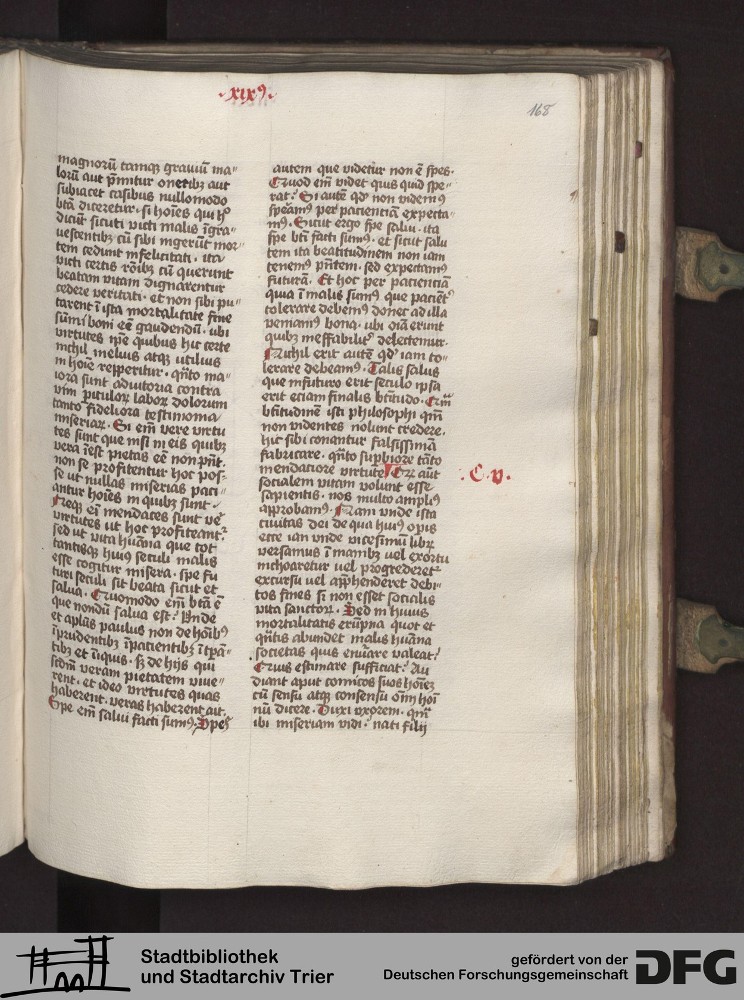 .xixꝰ.
168
magnorū tamqꝫ grauiū ma
lorū aut p̄mitur onetibꝫ aut
subiacet casibus nullomodo
bt̄a diceretur. si hoīes qui h
dicūt sicuti victi malis īgra
uescentibꝫ cū sibi ingerūt mor
tem cedunt infelicitati. ita
victi certis rōibꝫ cū querunt
beatam vitam dignarentur
cedere veritati. et non sibi pu
tarent ī ista mortalitate fine
sūmi boni eē gaudendū. ubi
virtutes ip̄e quibus hic certe
nichil melius atqꝫ utilius
in hoīe repperitur. qn̄to ma
iora sunt adiutoria contra
vim piculoꝝ laboꝝ dolorum
tanto fideliora testimonia
miseriaꝝ. Si em̄ vere virtu
tes sunt que nisi in eis quibꝫ
vera īest pietas eē non pn̄t.
non se profitentur hoc pos
se ut nullas miserias paci
antur hoīes in quibꝫ sunt.
Neqꝫ ei mendaces sunt ve
virtutes ut hoc profiteant
sed ut vita huāna que tot
tantisqꝫ huiꝰ seculi malis
esse cogitur misera. spe fu
turi seculi sit beata sicut et
salua. Quomodo em̄ bt̄a ē
que nondū salua est? Vnde
et apl̄us paulus non de hoībꝰ
īprudentibꝫ īpacientibꝫ ītpā
tibꝫ et īiquis. sꝫ de hijs qui
scd̄m veram pietatem viue
rent. et ideo virtutes quas
haberent. veras haberent ait.
Spe em̄ salui facti sumꝰ. Spes
autem que videtur non ē spes.
Quod em̄ videt quis quid spe
rat? Si autē qd̓ non videmꝰ
speamꝰ per pacienciā expecta
mꝰ. Sicut ergo spe salui. ita
spe bt̄i facti sumꝰ. et sicut salu
tem ita beatitudinem non iam
tenemꝰ pn̄tem. sed expectamꝰ
futurā. Et hoc per pacienciā
quia ī malis sumꝰ que pacient
tolerare debemꝰ donec ad illa
veniamꝰ bona. ubi oīa erunt
quibꝫ ineffabilit delectemur.
Nichil erit autē qd̓ iam to
lerare debeamꝰ. Talis salus
que infuturo erit seculo ipsa
erit eciam finalis bt̄itudo. Qm̄
bt̄itudinē isti philosophi qm̄
non videntes nolunt credere.
hic sibi conantur falsissimā
fabricare. qn̄to supbiore tāto
mendaciore virtute. Qꝝ aut
socialem vitam volunt esse
sapientis. nos multo ampliꝰ
approbamꝰ. Nam unde ista
ciuitas dei de qua huiꝰ opis
ecce ian vnde vicesimū libꝝ
versamus ī manibꝫ vel exortu
inchoaretur vel progrederet
excursu vel app̄henderet debi
tos fines si non esset socialis
vita sanctoꝝ. Sed in huius
mortalitatis erūpna quot et
qn̄tis abundet malis huāna
societas quis enūare valeat?
Quis estimare sufficiat? Au
diant aput comicos suos hoīez
cū sensu atqꝫ consensu om̄i hoī
nū dicere. Duxi vxorem. qm̄
ibi miseriam vidi. nati filij
.C.v.
Stadtbibliothek
und Stadtarchiv Trier
gefördert von der
Deutschen Forschungsgemeinschaft
DFG